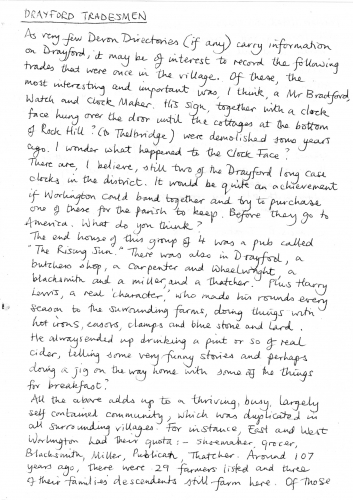 DRAYFORD TRADESMEN
As very few Devon Directories (if any) carry information
on Drayford, it may be of interest to record the following
trades that were once in the village. Of these, the
most interesting and important was, I think, a Mr Bradford,
Watch and Clock Maker. His sign, together with a clock
face hung over the door until the cottages at the bottom
of Rock Hill? (to Thelbridge) were demolished some years
ago. I wonder what happened to the Clock Face?
There are, I believe, still two of the Drayford long case
clocks in the district. It would be quite an achievement
if Worlington could band together and try to purchase
one of these for the parish to keep. Before they go to
America. What do you think?
The end house of this group of 4 was a pub called
"The Rising Sun." There was also in Drayford, a
butchers shop, a Carpenter and Wheelwright, a
blacksmith and a miller, and a thatcher. Plus Harry
Lewis, a real 'character,' who made his rounds every
season to the surrounding farms, doing things with
hot irons, casors, clamps and blue stone and lard.
He always ended up drinking a pint or so of real
cider, telling some very funny stories and perhaps
doing a jig on the way home with some of the things
for breakfast?
All the above adds up to a thriving, busy, largely
self contained community, which was duplicated in
all surrounding villages. For instance, East and West
Worlington had their quota:- Shoemaker, Grocer,
Blacksmith, Miller, Publican, Thatcher. Around 107
years ago, there were 29 farmers listed and three
of their families' descendents still farm here. Of those